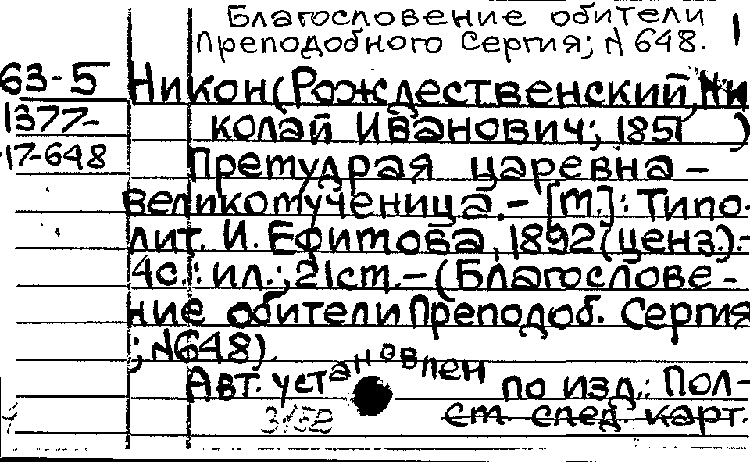 Благословение обители
Преподобного Сергия; N 648.
63-5 Никон (Рождественский, Ни-
1377- колай Иванович; 1851 )
17-648 Премудрая царевна -
великомученица. - [М.]: Типо-
лит. И. Ефимова, 1892 (ценз.). -
4с.: ил.; 21см. - (Благослове-
ние обители Преподоб. Сергия
; N648).
Авт. установлен по изд.: Пол-
см. след. карт.